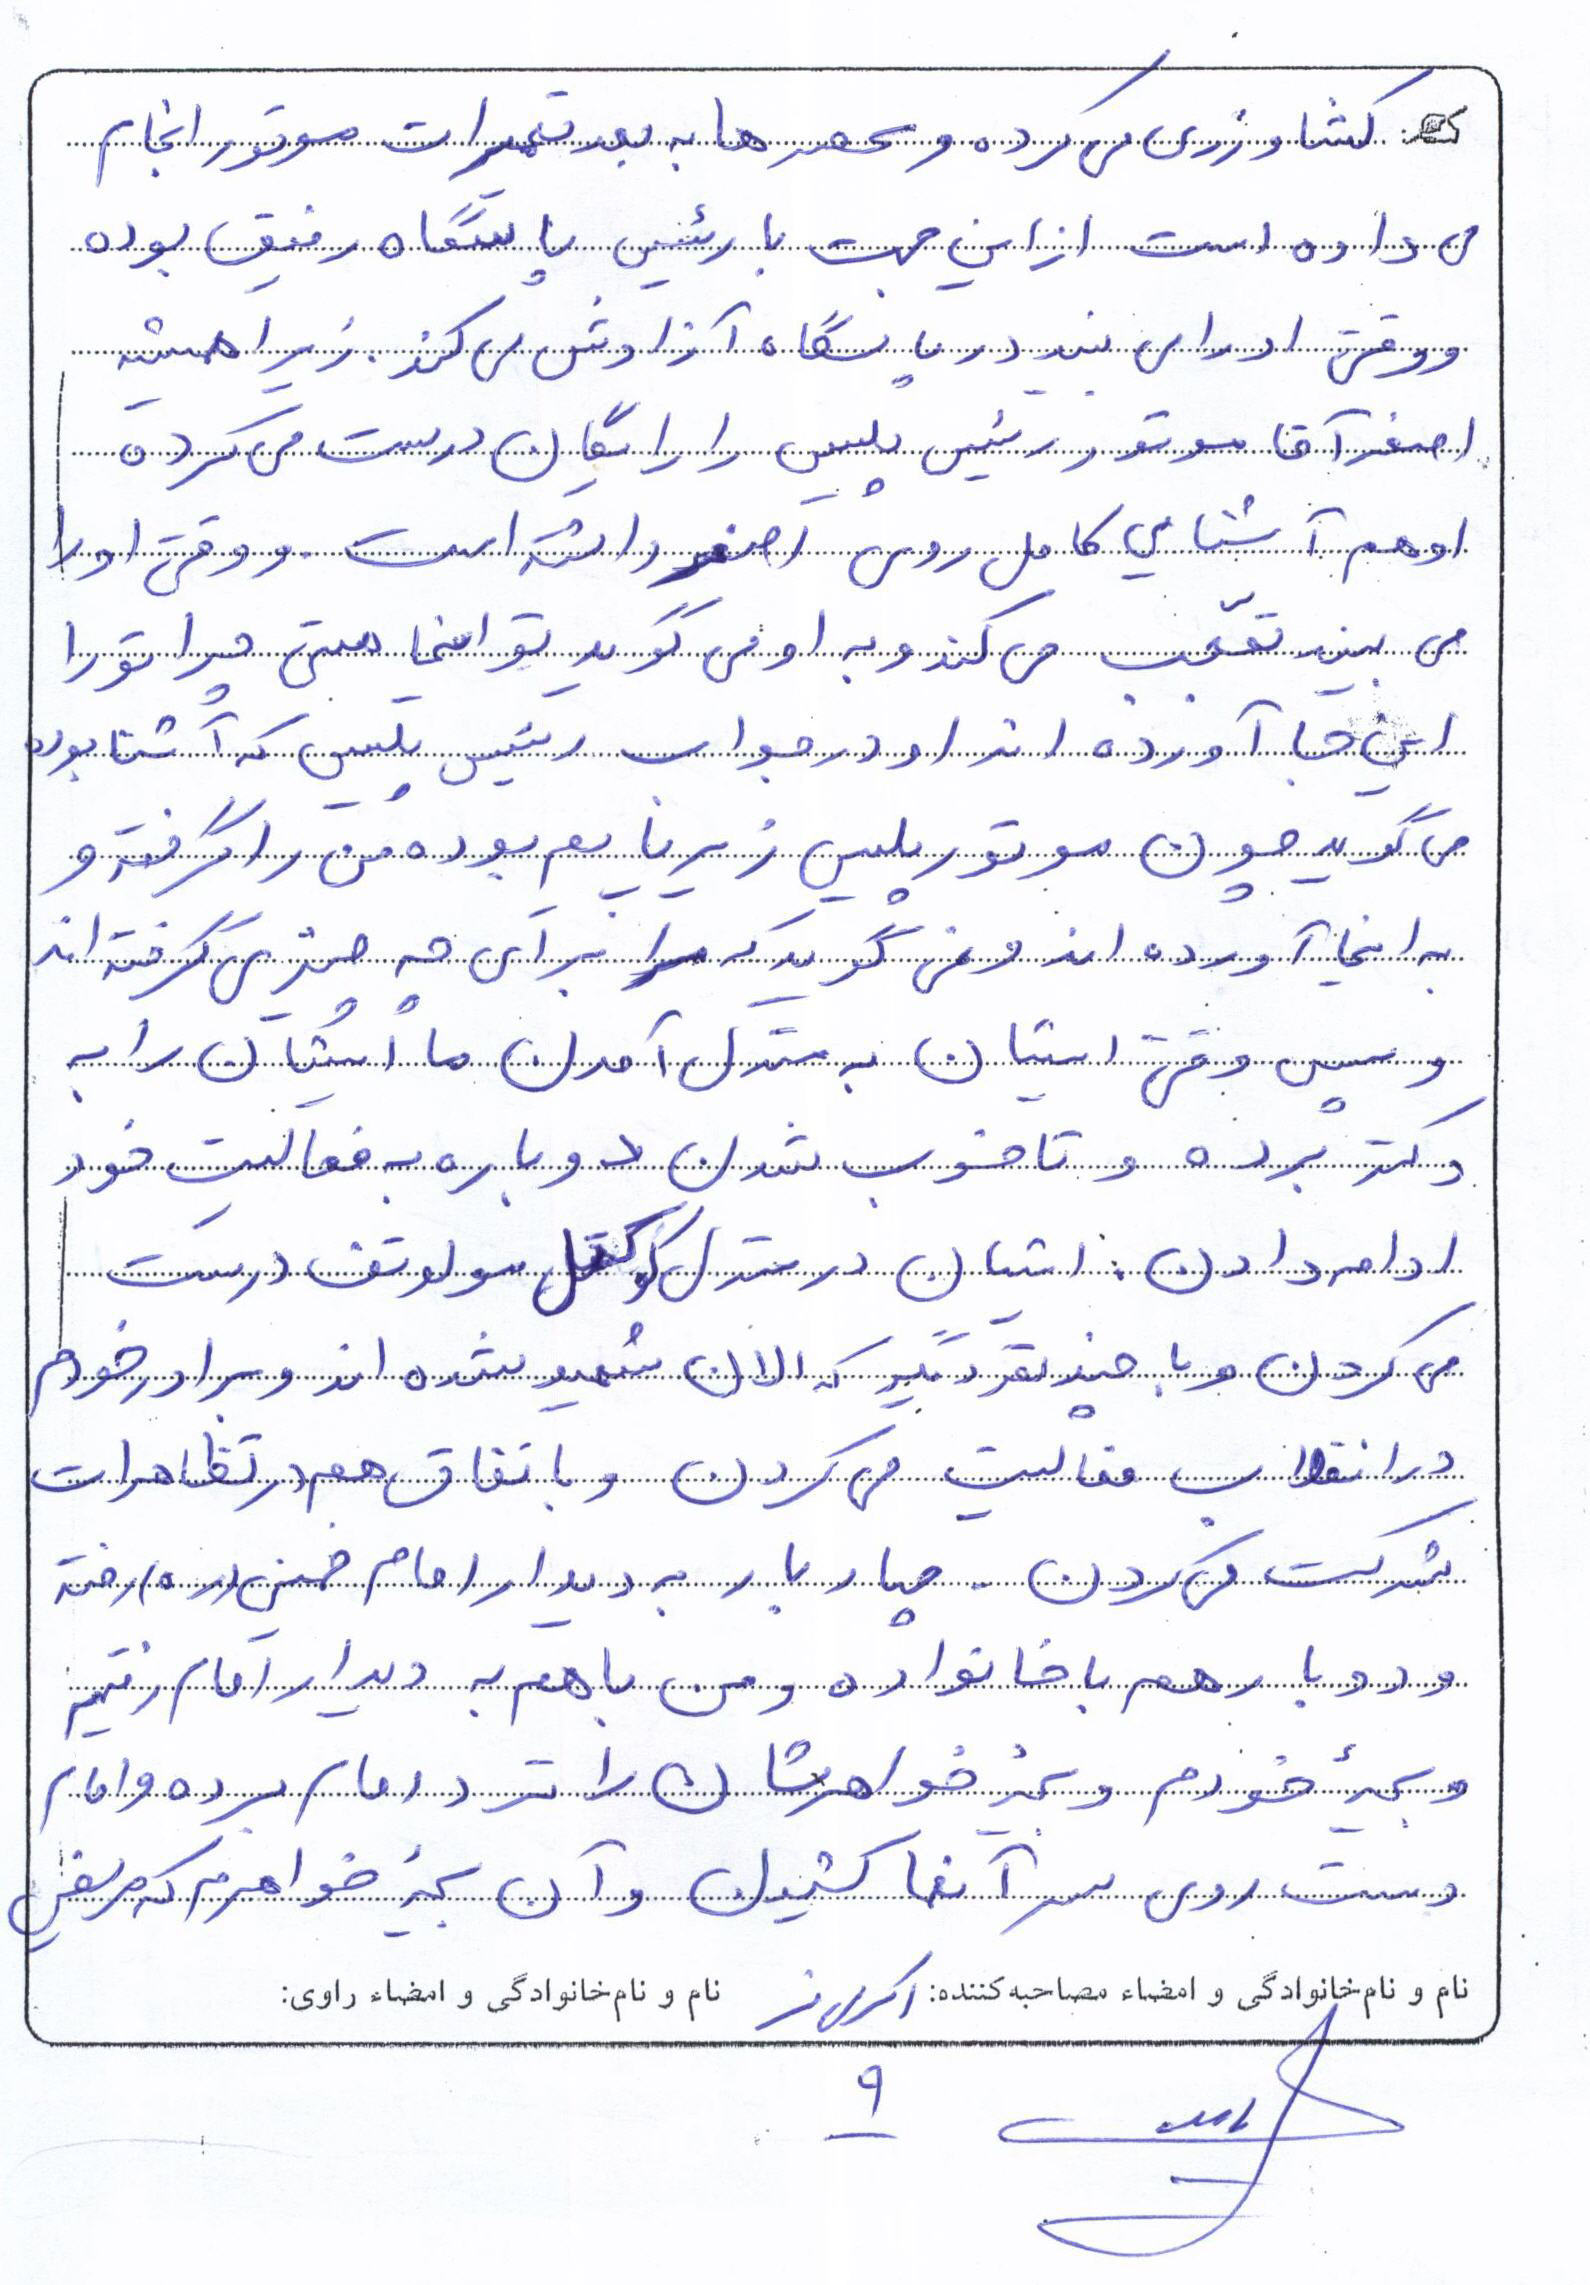 کشاورزی می کرده و عصرها به بعد تعمیرات موتور انجام
می داده است از این جهت با رئیس پاسگاه رفیق بوده
و وقتی او را می بیند در پاسگاه آزادش می کند. زیرا همیشه
اصغر آقا موتور رئیس پلیس را رایگان درست می کرده
او هم آشنایی کامل روی اصغر داشته است. و وقتی او را
می بیند تعّجب می کند و به او می گوید تو اینجا هستی چرا تو را
این جا آورده اند او در جواب رئیس پلیس که آشنا بوده
می گوید چون موتور پلیس زیر پایم بوده من را گرفته و
به اینجا آورده اند و نمی گوید که مرا برای چه چیزی گرفته اند
و سپس وقتی ایشان به منزل آمدن ما ایشان را به
دکتر برده و تا خوب شدن دوباره به فعالیت خود
ادامه دادن. ایشان در منزل کوکتل مولوتف درست
می کردن و با چند نفر دیگر که الان شهید شده اند و برادر خودم
در انقلاب فعالیت می کردن و با تفاق هم در تظاهرات
شرکت می کردن. چهار بار به دیدار امام خمینی (ره) رفته
و دو بار هم با خانواده و من با هم به دیدار امام رفتیم
و بچۀ خودم و بچۀ خواهرشان را نزد امام برده و امام
دست روی سر آنها کشیدن و آن بچۀ خواهرم که مریض
نام و نام خانوادگی و امضاء مصاحبه کننده: نام و نام خانوادگی و امضاء راوی:
۹